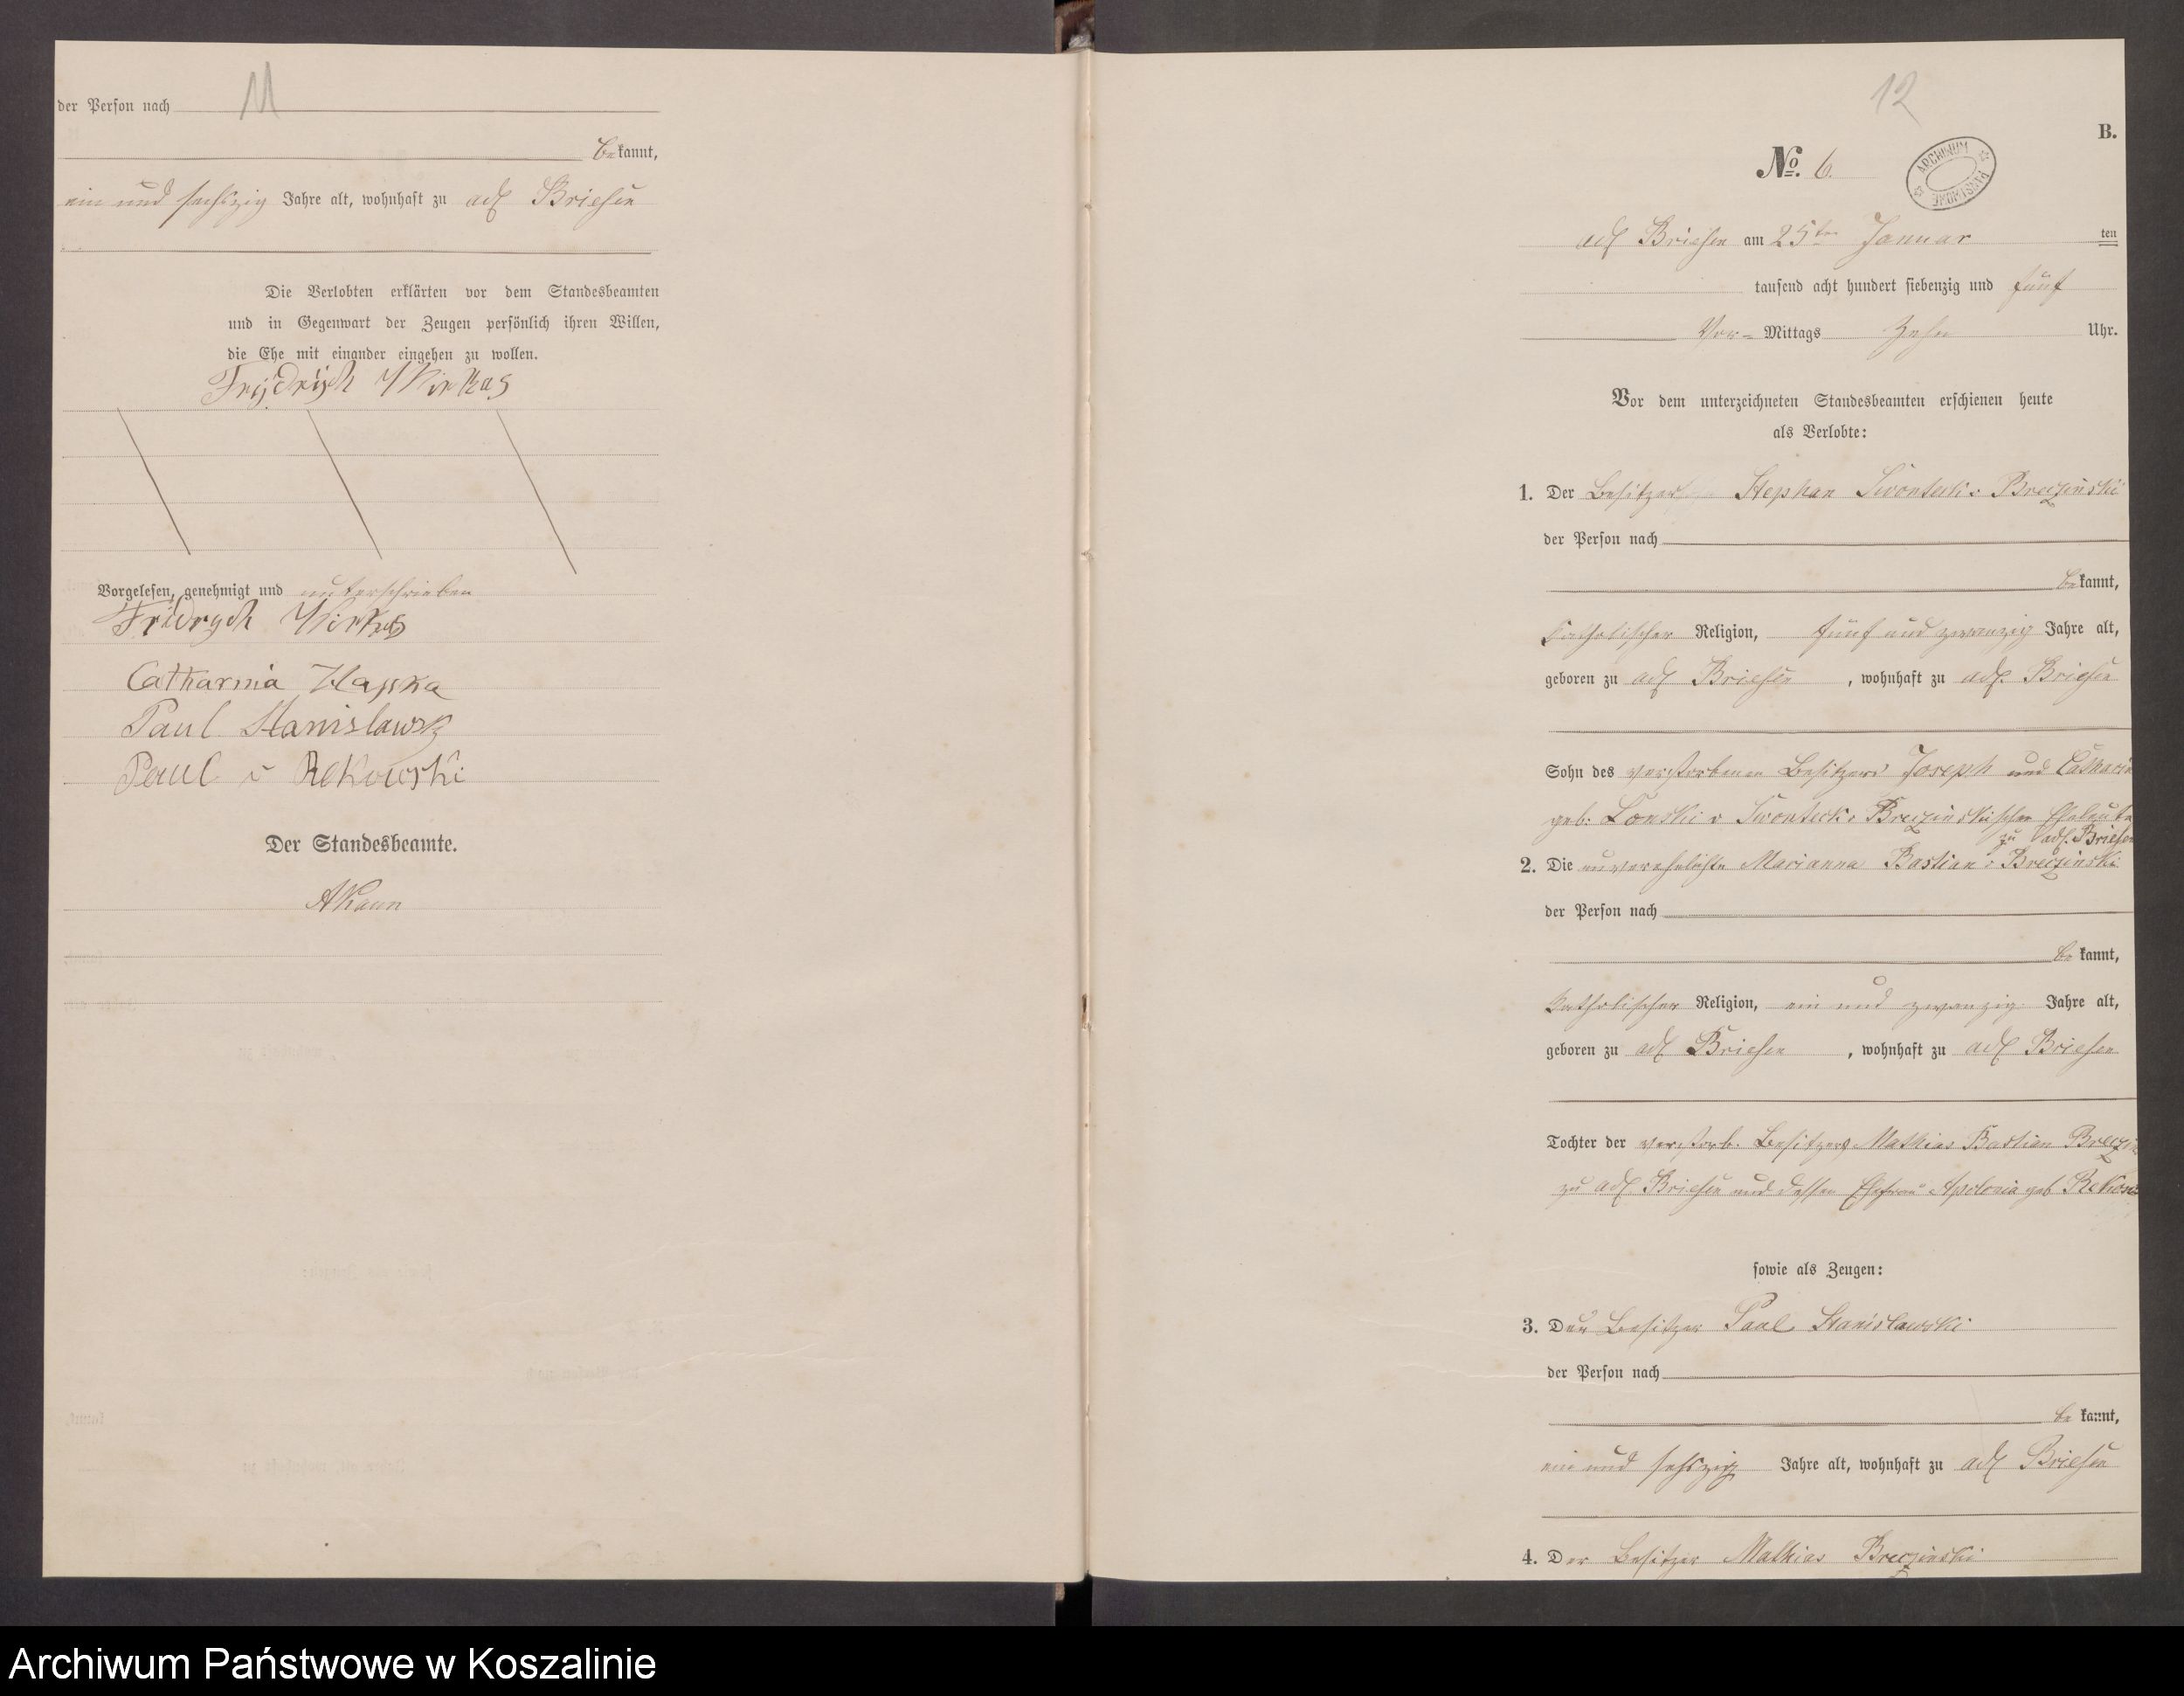 11
der Person nach
bekannt,
ein und sechszig Jahre alt, wohnhaft zu adl Briesen
Die Verlobten erklärten vor dem Standesbeamten
und in Gegenwart der Zeugen persönlich ihren Willen,
die Ehe mit einander eingehen zu wollen.
Frydrych Wirkus
Vorgelesen, genehmigt und unterschrieben
Fridrych Wirkus
Catharina
Paul Stanislawski
Paul v Rekowski
Der Standesbeamte.
12
B.
No. 6.
ARCHIWUM PAŃSTWOWE
adl Briesen am 25ten Januar ten
tausend acht hundert siebenzig und fünf
Vor-Mittags Zehn Uhr.
Vor dem unterzeichneten Standesbeamten erschienen heute
als Verlobte:
1. Der Besitzer Stephan v Breczinski
der Person nach
bekannt,
katholischer Religion, fünf und zwanzig Jahre alt,
geboren zu adl Briesen, wohnhaft zu adl. Briesen
Sohn des verstorbenen Besitzers Joseph und Catharin
geb: v Breczinskischen Eheleute
zu adl. Briesen
2. Die unverehelichte Marianna Bastian v Breczinski
der Person nach
bekannt,
katholischer Religion, ein und zwanzig Jahre alt,
geboren zu adl Briesen, wohnhaft zu adl Briesen
Tochter der verstorb. Besitzers Mathias Bastian Breczin
zu adl. Briesen und dessen Ehefrau Apolonia geb
sowie als Zeugen:
3. Der Besitzer Paul Stanislawski
der Person nach
bekannt,
ein und sechszig Jahre alt, wohnhaft zu adl Briesen
4. Der Besitzer Mathias Breczinski
Archiwum Państwowe w Koszalinie